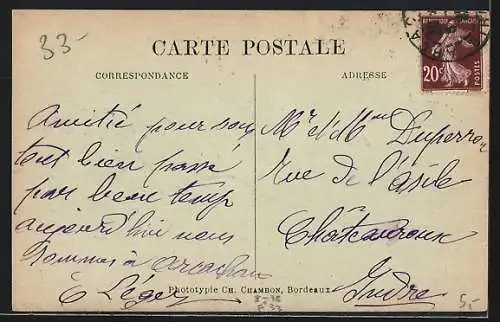 33-
CARTE POSTALE
CORRESPONDANCE
ADRESSE
20c
POSTES
Amitié pour
tout bien passé
par beau temp
aujourd'hui nous
sommes à arcachon
E Léger
Mr et Mme Duperron
Rue de l'asile
Châteauroux
Indre
Phototypie CH. CHAMBON, Bordeaux
5,-